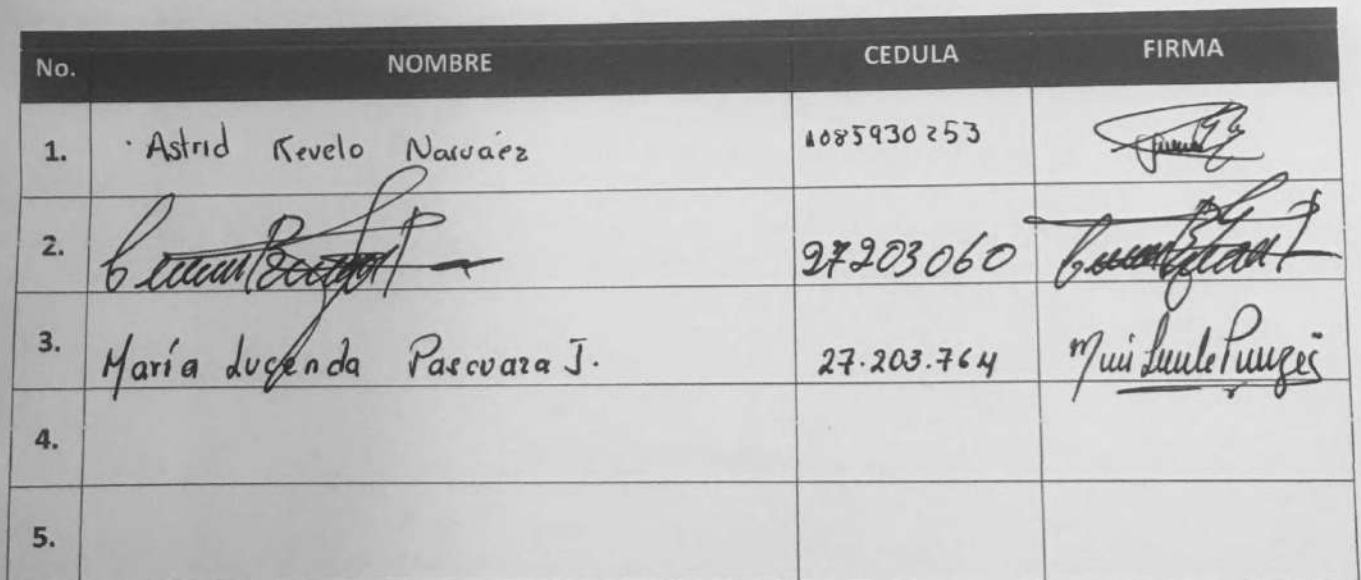 No. NOMBRE CEDULA FIRMA
1. Astrid Revelo Narváez 1085930253
2. 27203060
3. María Lucenda Pascuaza J. 27.203.764
4.
5.